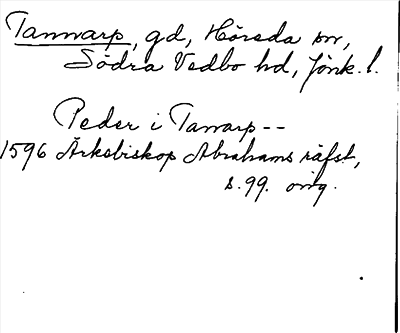 Tanwarp, gd, Höreda sn,
Södra Vedbo hd, Jönk. l.
Peder i Tanwarp --
1596 Ärkebiskop Abrahams räfst,
s. 99. orig.